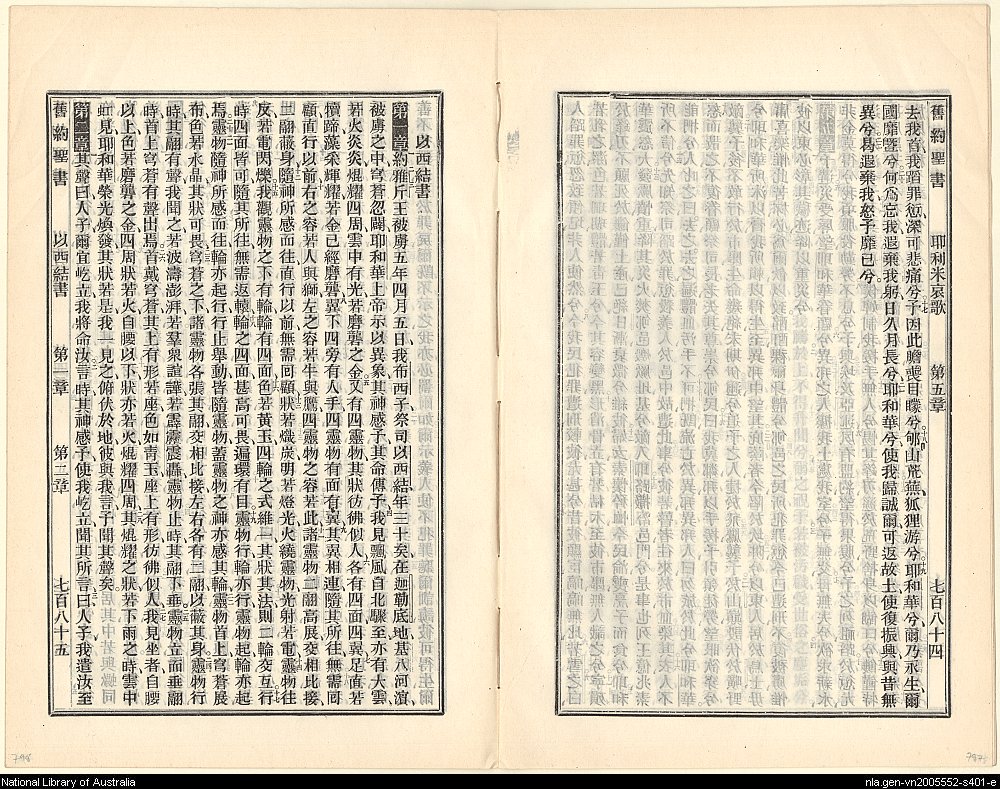 舊約聖書 耶利米哀歌 第五章 七百八十四
去我首我蹈罪愆深可悲痛兮予因此膽喪目矇兮郇山荒蕪狐狸游兮耶和華兮爾乃永生爾
國靡曁兮何爲忘我遐棄我躬日久月長兮耶和華兮使我歸誠爾可返故土使復振興與昔無
異兮曷遐棄我怒予靡已兮
以西結書
第一章約雅斤王被虜五年四月五日我布西子祭司以西結年三十矣在迦勒底地基八河濱
被虜之中穹蒼忽闢耶和華上帝示以異象其神感予其命傳予我見飄風自北驟至亦有大雲
若火炎炎焜耀四周雲中有光若磨礱之金又有四靈物其狀彷彿似人各有四面四翼足直若
犢蹄藻采輝耀若金已經磨礱翼下四旁有人手四靈物有面有翼其翼相連隨其所往無需回
顧直行以前右之容若人與獅左之容若牛與鷹四靈物之容若此諸靈物二翮高展交相比接
二翮蔽身隨神所感而往直行以前無需回顧狀若熾炭明若燈光火繞靈物光射若電靈物往
反若電閃爍我觀靈物之下有輪輪有四面色若黃玉四輪之式維一其狀其法則二輪交互行
時四面皆可隨其所往無需返轅輪之四面甚高可畏遍環有目靈物行輪亦行靈物起輪亦起
焉靈物隨神所感而往輪亦起行行止舉動皆隨靈物蓋靈物之神亦感其輪靈物首上穹蒼展
布色若水晶其狀可畏穹蒼之下諸靈物各張其翮交相比接左右各有二翮以蔽其身靈物行
時其翮有聲我聞之若波濤澎湃若羣衆諠譁若霹靂震轟靈物止時其翮下垂靈物立而垂翮
時首上穹蒼有聲出焉首戴穹蒼其上有形若座色如青玉座上有形彷彿似人我見坐者自腰
以上色若磨礱之金四周狀若火自腰以下狀亦若火焜耀四周其焜耀之狀若下雨之時雲中
虹見耶和華榮光煥發其狀若是我一見之俯伏於地彼與我言予聞其聲矣
第二章其聲曰人子爾宜屹立我將命汝言時其神感予使我屹立聞其所言曰人子我遣汝至
舊約聖書 以西結書 第一章 第二章 七百八十五
798
787
National Library of Australia
nla.gen-vn2005552-s401-e